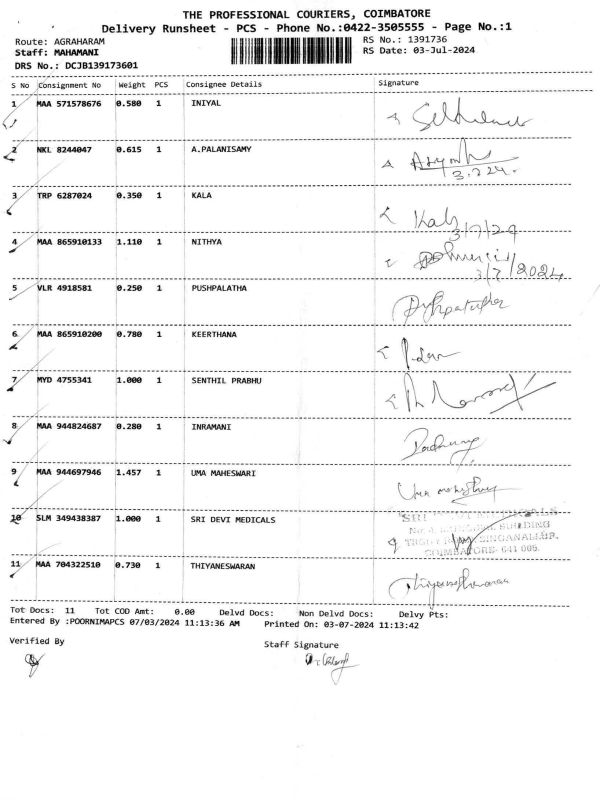 THE PROFESSIONAL COURIERS, COIMBATORE
Delivery Runsheet - PCS - Phone No.:0422-3505555 - Page No.:1
Route: AGRAHARAM RS No.: 1391736
Staff: MAHAMANI RS Date: 03-Jul-2024
DRS No.: DCJB139173601
S No Consignment No Weight PCS Consignee Details Signature
1 MAA 571578676 0.580 1 INIYAL
2 NKL 8244047 0.615 1 A.PALANISAMY
3.7.24.
3 TRP 6287024 0.350 1 KALA
Kala
3/7/24
4 MAA 865910133 1.110 1 NITHYA
3/7/2024
5 VLR 4918581 0.250 1 PUSHPALATHA
6 MAA 865910200 0.780 1 KEERTHANA
7 MYD 4755341 1.000 1 SENTHIL PRABHU
8 MAA 944824687 0.280 1 INRAMANI
9 MAA 944697946 1.457 1 UMA MAHESWARI
Uma maheshwary
10 SLM 349438387 1.000 1 SRI DEVI MEDICALS
SRI
BUILDING
SINGANALLUR,
COIMBATORE- 641 005.
11 MAA 704322510 0.730 1 THIYANESWARAN
Thiyaneshwaran
Tot Docs: 11 Tot COD Amt: 0.00 Delvd Docs: Non Delvd Docs: Delvy Pts:
Entered By :POORNIMAPCS 07/03/2024 11:13:36 AM Printed On: 03-07-2024 11:13:42
Verified By Staff Signature